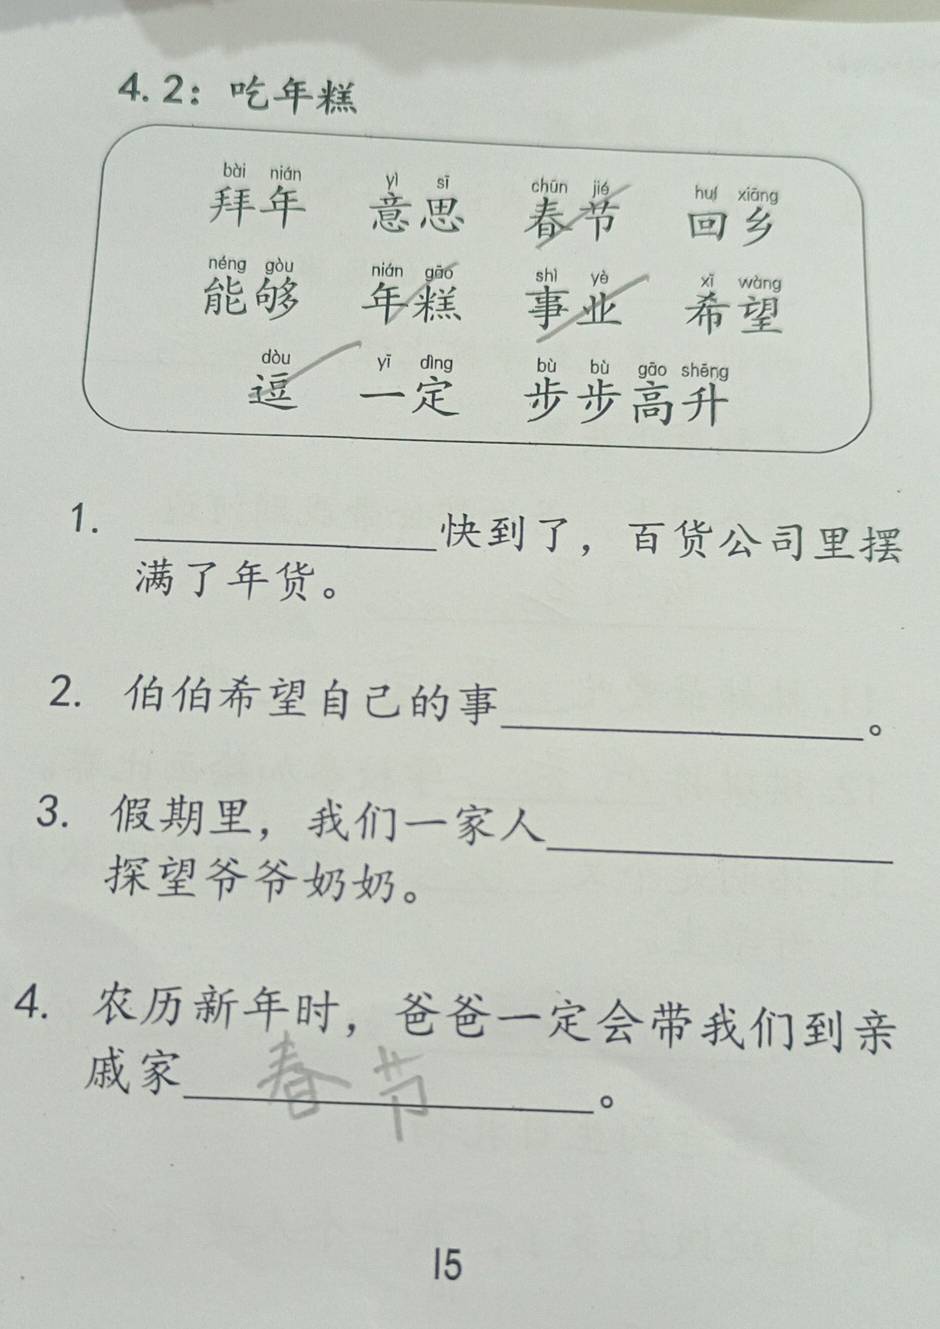 4.2：吃年糕
bài nián yì sī chūn jié huí xiāng
拜年 意思 春节 回乡
néng gòu nián gāo shì yè xī wàng
能够 年糕 事业 希望
dòu yī dìng bù bù gāo shēng
逗 一定 步步高升
1. ____________快到了，百货公司里摆
满了年货。
2. 伯伯希望自己的事____________。
3. 假期里，我们一家人____________
探望爷爷奶奶。
4. 农历新年时，爸爸一定会带我们到亲
戚家春节。
15